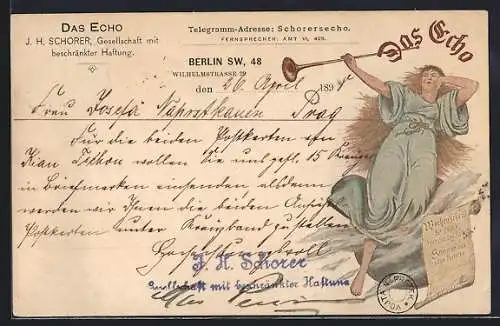 DAS ECHO
J. H. SCHORER, Gesellschaft mit
beschränkter Haftung.
Telegramm-Adresse: Schorersecho.
FERNSPRECHER: AMT VI, 425.
Das Echo
BERLIN SW, 48
WILHELMSTRASSE 29
den 26 April 189
Frau Josefa Náprstkauen Prag
Für die beiden Postkarten
wollen Sie uns gefl. 15 Kreuzer
in Briefmarken einsenden alsdann
werden wir Ihnen die beiden
Postkarten unter Kreuzband zustellen
Hochachtungsvoll
J. H. Schorer
Gesellschaft mit beschränkter Haftung